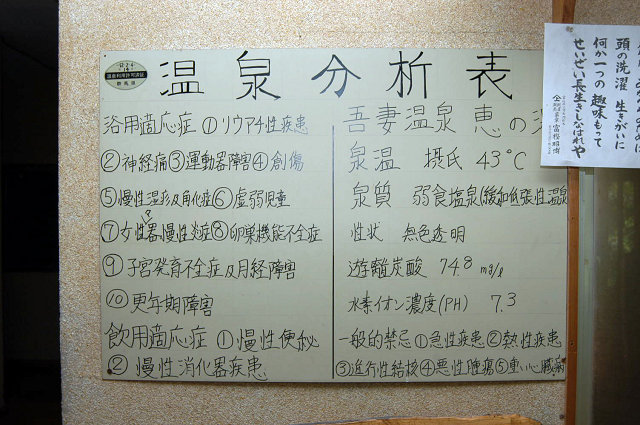 温泉分析表
温泉利用許可済証
群馬県
浴用適応症 ①リウマチ性疾患
②神経痛③運動器障害④創傷
⑤慢性湿疹及角化症⑥虚弱児童
⑦女性器慢性炎症⑧卵巣機能不全症
⑨子宮発育不全症及月経障害
⑩更年期障害
飲用適応症 ①慢性便秘
②慢性消化器疾患
吾妻温泉 恵の
泉温 摂氏 43°C
泉質 弱食塩泉(緩和低張性温泉
性状 無色透明
遊離炭酸 74.8 mg/l
水素イオン濃度(PH) 7.3
一般的禁忌①急性疾患②熱性疾患
③進行性結核④悪性腫瘍⑤重い心臓病
頭の洗濯 生きがいに
何か一つの 趣味もって
せいぜい長生きしなはれや